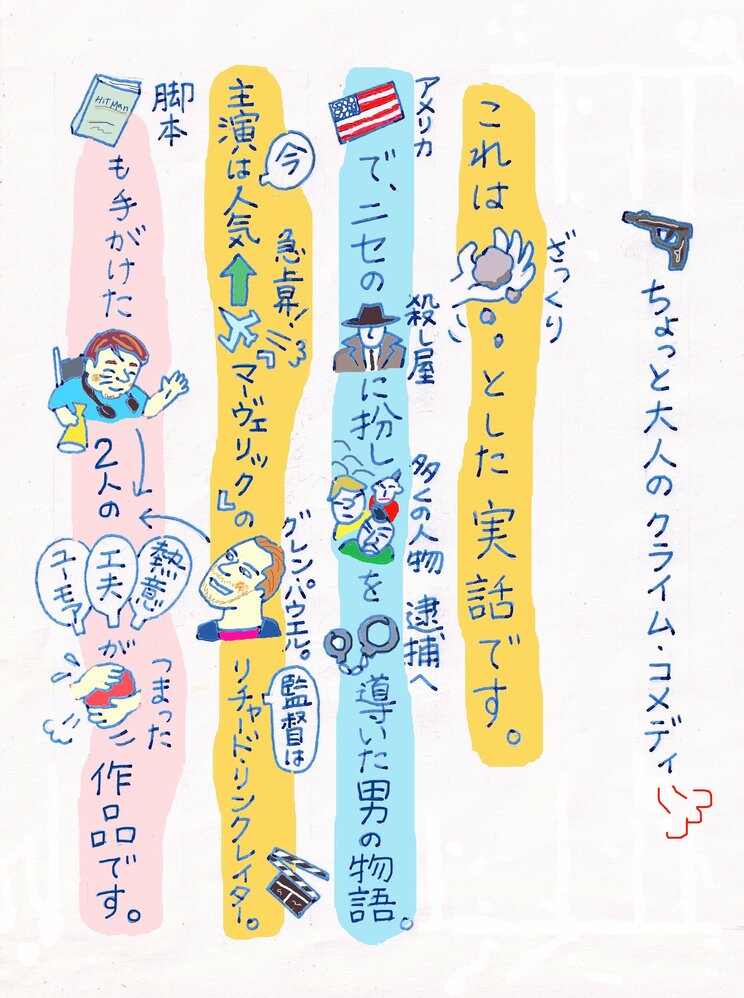 ちょっと大人のクライム・コメディ
これはざっくりとした実話です。
アメリカで、ニセの殺し屋に扮し多くの人物を逮捕へ導いた男の物語。
主演は今人気急上昇!『マーヴェリック』のグレン・パウエル。監督はリチャード・リンクレイター。
脚本も手がけた2人の熱意工夫ユーモアがつまった作品です。
HITMAN